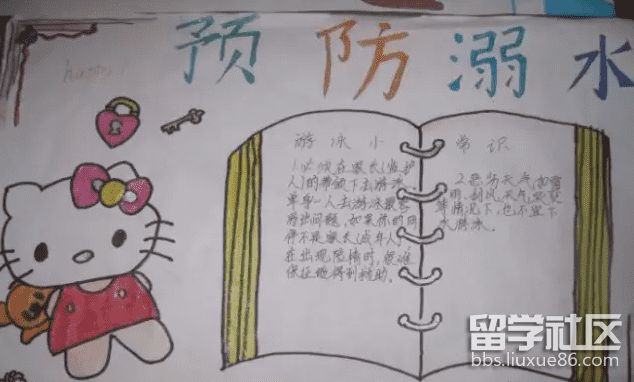 预防溺水
happy
游泳小常识
1.必须在家长(监护
人)的带领下去游泳
单身一人去游泳最容
易出问题,如果你的同
伴不是家长(成年人)
在出现险情时,很难
保证地得到救助。
2.恶劣天气,如雷
雨、刮风、天气
等情况下,也不宜下
水游泳。
留学社区
bbs.liuxue86.com